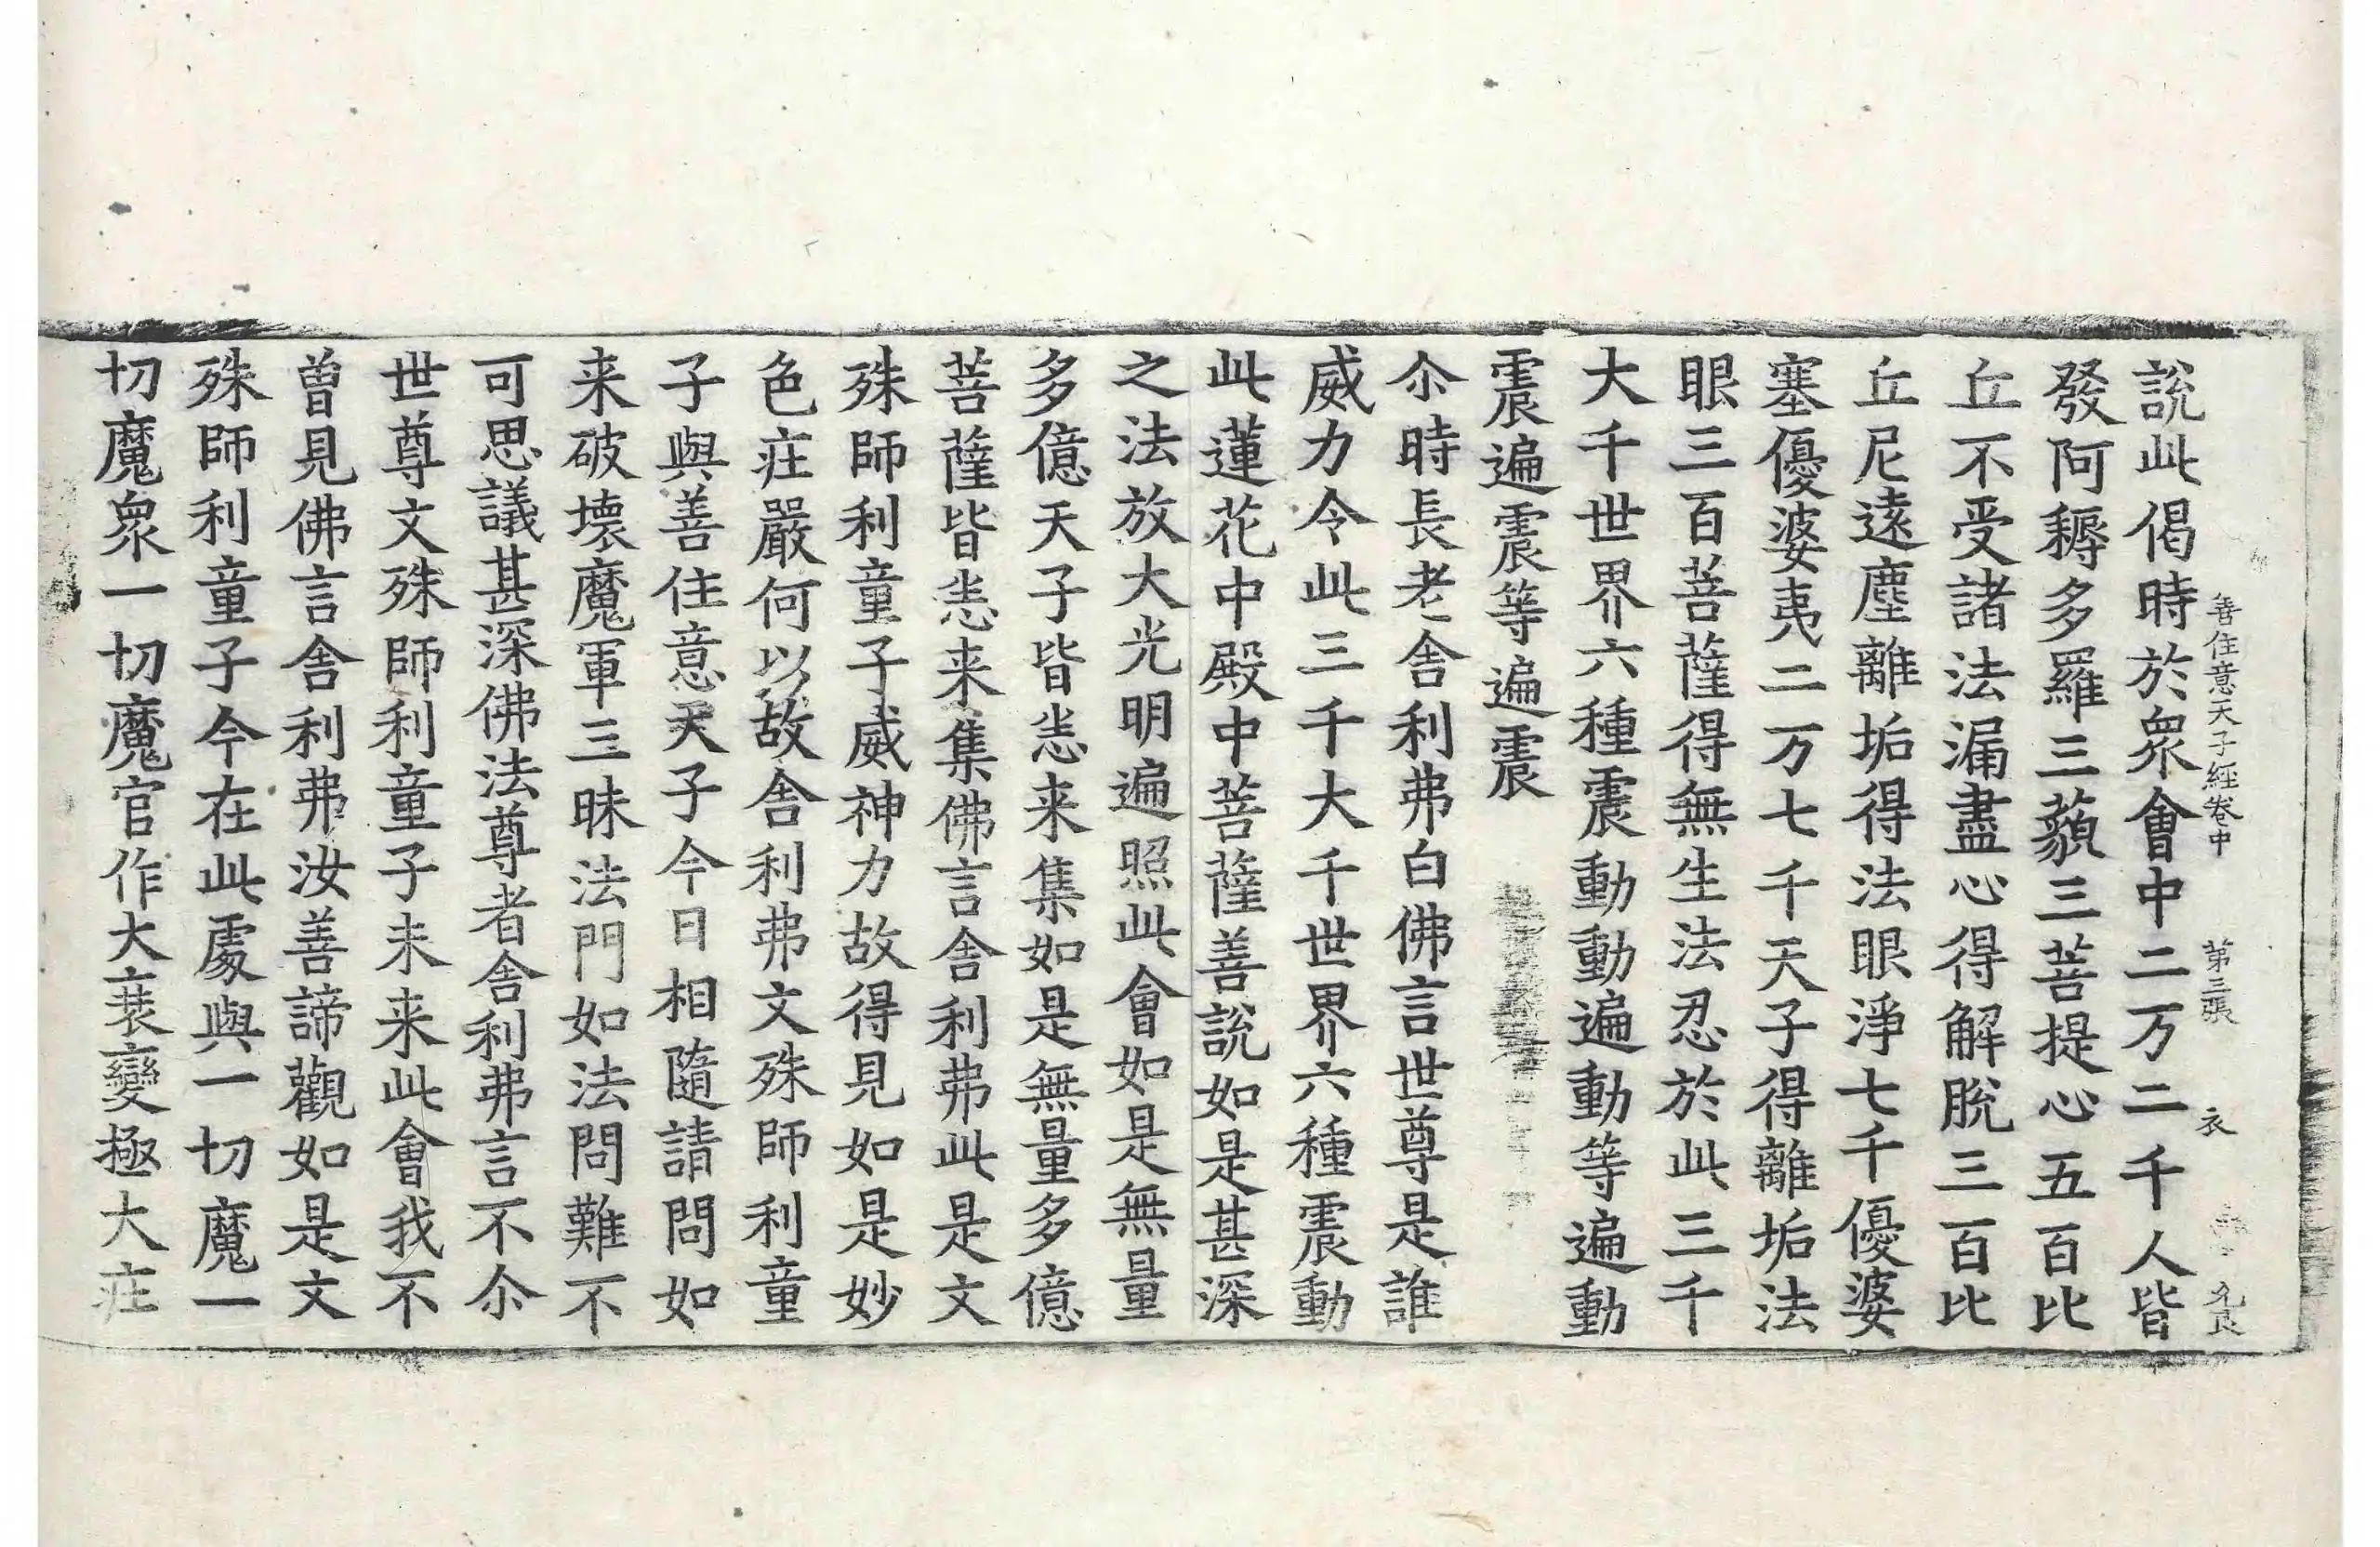 善住意天子經卷中 第三張 衣
說此偈時於眾會中二万二千人皆
發阿耨多羅三藐三菩提心五百比
丘不受諸法漏盡心得解脫三百比
丘尼遠塵離垢得法眼淨七千優婆
塞優婆夷二万七千天子得離垢法
眼三百菩薩得無生法忍於此三千
大千世界六種震動動遍動等遍動
震遍震等遍震
尒時長老舍利弗白佛言世尊是誰
威力令此三千大千世界六種震動
此蓮花中殿中菩薩善說如是甚深
之法放大光明遍照此會如是無量
多億天子皆悉来集如是無量多億
菩薩皆悉来集佛言舍利弗此是文
殊師利童子威神力故得見如是妙
色庄嚴何以故舍利弗文殊師利童
子與善住意天子今日相隨請問如
来破壞魔軍三昧法門如法問難不
可思議甚深佛法尊者舍利弗言不尒
世尊文殊師利童子未来此會我不
曾見佛言舍利弗汝善諦觀如是文
殊師利童子今在此處與一切魔一
切魔眾一切魔官作大衰變極大庄